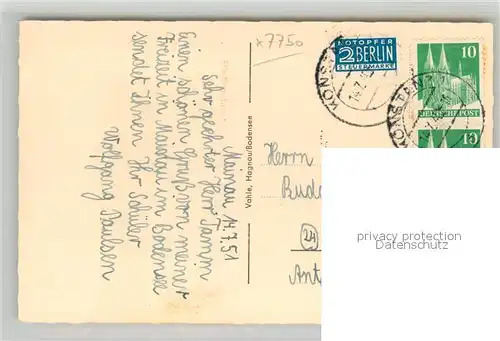 x 7750
Mainau 14.7.51
Sehr geehrter Herr Tamm
Einen schönen Gruß von meiner
Freizeit in Mainau im Bodensee
sendet Ihnen Ihr Schüler
Wolfgang Paulsen
Vahle, Hagnau/Bodensee
NOTOPFER
2 BERLIN
STEUERMARKE
KONSTANZ
10
DEUTSCHE POST
KONSTANZ
10
Herrn
(24
privacy protection
Datenschutz